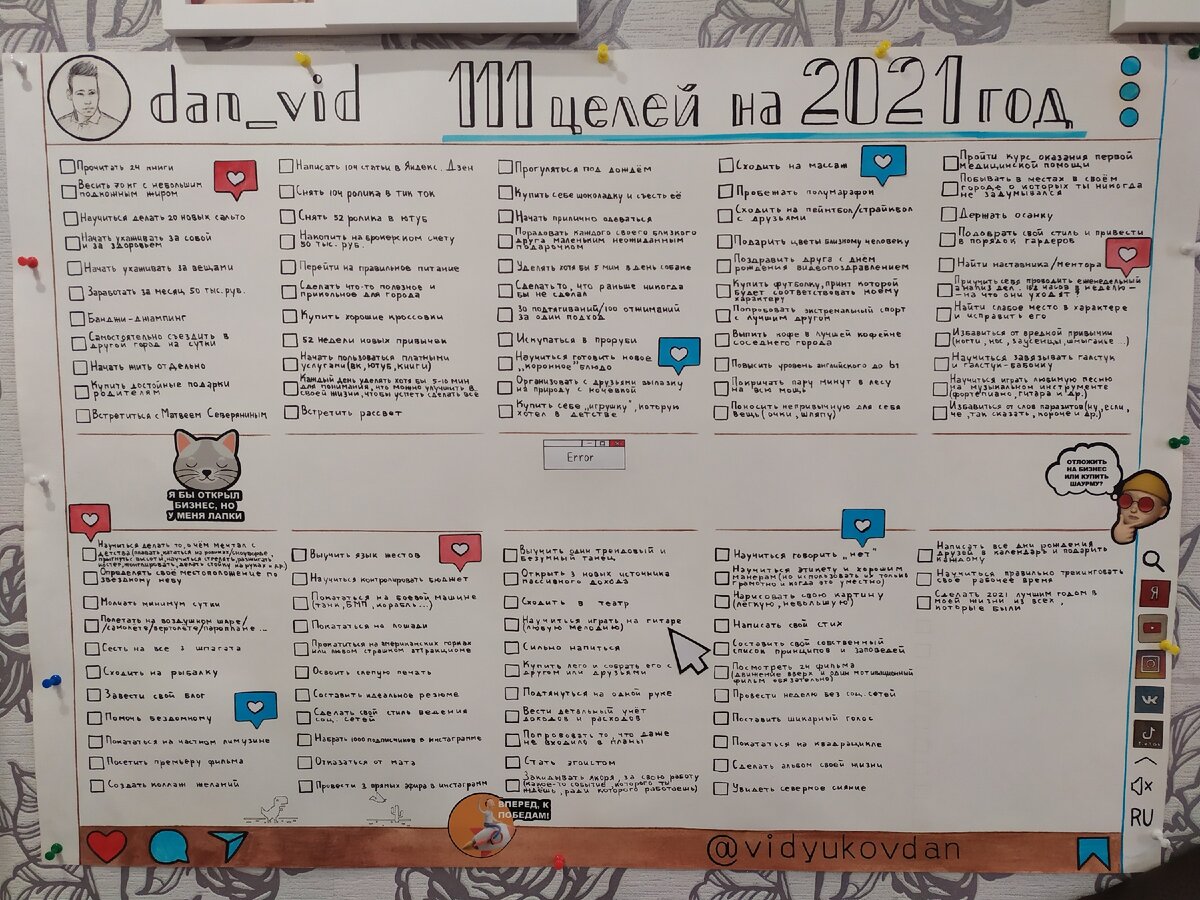 dan_vid
111 целей на 2021 год
Прочитать 24 книги
Весить 70 кг с небольшим
подкожным жиром
Научиться делать 20 новых сальто
Начать ухаживать за собой
и за здоровьем
Начать ухаживать за вещами
Заработать за месяц 50 тыс. руб.
Банджи-джампинг
Самостоятельно съездить в
другой город на сутки
Начать жить отдельно
Купить достойные подарки
родителям
Встретиться с Матвеем Северяниным
Написать 104 статьи в Яндекс. Дзен
Снять 104 ролика в тик ток
Снять 52 ролика в ютуб
Накопить на брокерском счету
50 тыс. руб.
Перейти на правильное питание
Сделать что-то полезное и
прикольное для города
Купить хорошие кроссовки
52 недели новых привычек
Начать пользоваться платными
услугами(вк, ютуб, книги)
Каждый день уделять хотя бы 5-10 мин
для понимания, что можно улучшить в
своей жизни, чтобы успеть сделать всё
Встретить рассвет
Прогуляться под дождём
Купить себе шоколадку и съесть её
Начать прилично одеваться
Порадовать каждого своего близкого
друга маленьким неожиданным
подарочком
Уделять хотя бы 5 мин в день собаке
Сделать то, что раньше никогда
бы не сделал
30 подтягиваний/100 отжиманий
за один подход
Искупаться в проруби
Научиться готовить новое
"коронное" блюдо
Организовать с друзьями вылазку
на природу с ночёвкой
Купить себе "игрушку", которую
хотел в детстве
Сходить на массаж
Пробежать полумарафон
Сходить на пейнтбол/страйкбол
с друзьями
Подарить цветы близкому человеку
Поздравить друга с днём
рождения видеопоздравлением
Купить футболку, принт которой
будет соответствовать моему
характеру
Попробовать экстремальный спорт
с лучшим другом
Выпить кофе в лучшей кофейне
соседнего города
Повысить уровень английского до b1
Покричать пару минут в лесу
на всю мощь
Поносить непривычную для себя
вещь(очки, шляпу)
Пройти курс оказания первой
медицинской помощи
Побывать в местах в своём
городе о которых ты никогда
не задумывался
Держать осанку
Подобрать свой стиль и привести
в порядок гардероб
Найти наставника/ментора
Приучить себя проводить еженедельный
анализ дел. 168 часов в неделю –
– на что они уходят?
Найти слабое место в характере
и исправить его
Избавиться от вредной привычки
(ногти, нос, заусенцы, шмыганье...)
Научиться завязывать галстук
и галстук-бабочку
Научиться играть любимую песню
на музыкальном инструменте
(фортепиано, гитара и др.)
Избавиться от слов паразитов(ну, если,
че, так сказать, короче и др.)
Я БЫ ОТКРЫЛ
БИЗНЕС, НО
У МЕНЯ ЛАПКИ
Error
ОТЛОЖИТЬ
НА БИЗНЕС
ИЛИ КУПИТЬ
ШАУРМУ?
Научиться делать то, о чём мечтал с
Определять своё местоположение по
звездному небу
Молчать минимум сутки
Полетать на воздушном шаре/
/самолёте/вертолёте/параплане...
Сесть на все 3 шпагата
Сходить на рыбалку
Завести свой блог
Помочь бездомному
Покататься на частном лимузине
Посетить премьеру фильма
Создать коллаж желаний
Выучить язык жестов
Научиться контролировать бюджет
Покататься на боевой машине
(танк, БМП, корабль...)
Покататься на лошади
Прокатиться на американских горках
или любом страшном аттракционе
Освоить слепую печать
Составить идеальное резюме
Сделать свой стиль ведения
соц. сетей
Набрать 1000 подписчиков в инстаграмме
Отказаться от мата
Провести 3 прямых эфира в инстаграм
Выучить один трендовый и
безумный танец
Открыть 3 новых источника
пассивного дохода
Сходить в театр
Научиться играть на гитаре
(любую мелодию)
Сильно напиться
Купить лего и собрать его с
другом или друзьями
Подтянуться на одной руке
Вести детальный учёт
доходов и расходов
Попробовать то, что даже
не входило в планы
Стать эгоистом
Закидывать якоря, за свою работу
(какое-то событие, которого ты
ждёшь, ради которого работаешь)
Научиться говорить "нет"
Научиться этикету и хорошим
манерам(но использовать их только
грамотно и когда это уместно)
Нарисовать свою картину
(лёгкую, небольшую)
Написать свой стих
Составить свой собственный
список принципов и заповедей
Посмотреть 24 фильма
(движение вверх и один мотивационный
фильм обязательно)
Провести неделю без соц. сетей
Поставить шикарный голос
Покататься на квадрацикле
Сделать альбом своей жизни
Увидеть северное сияние
Написать все дни рождения
друзей в календарь и подарить
каждому
Научиться правильно трекинговать
своё рабочее время
Сделать 2021 лучшим годом в
моей жизни из всех,
которые были
Я
RU
ВПЕРЕД, К
ПОБЕДАМ!
@vidyukovdan